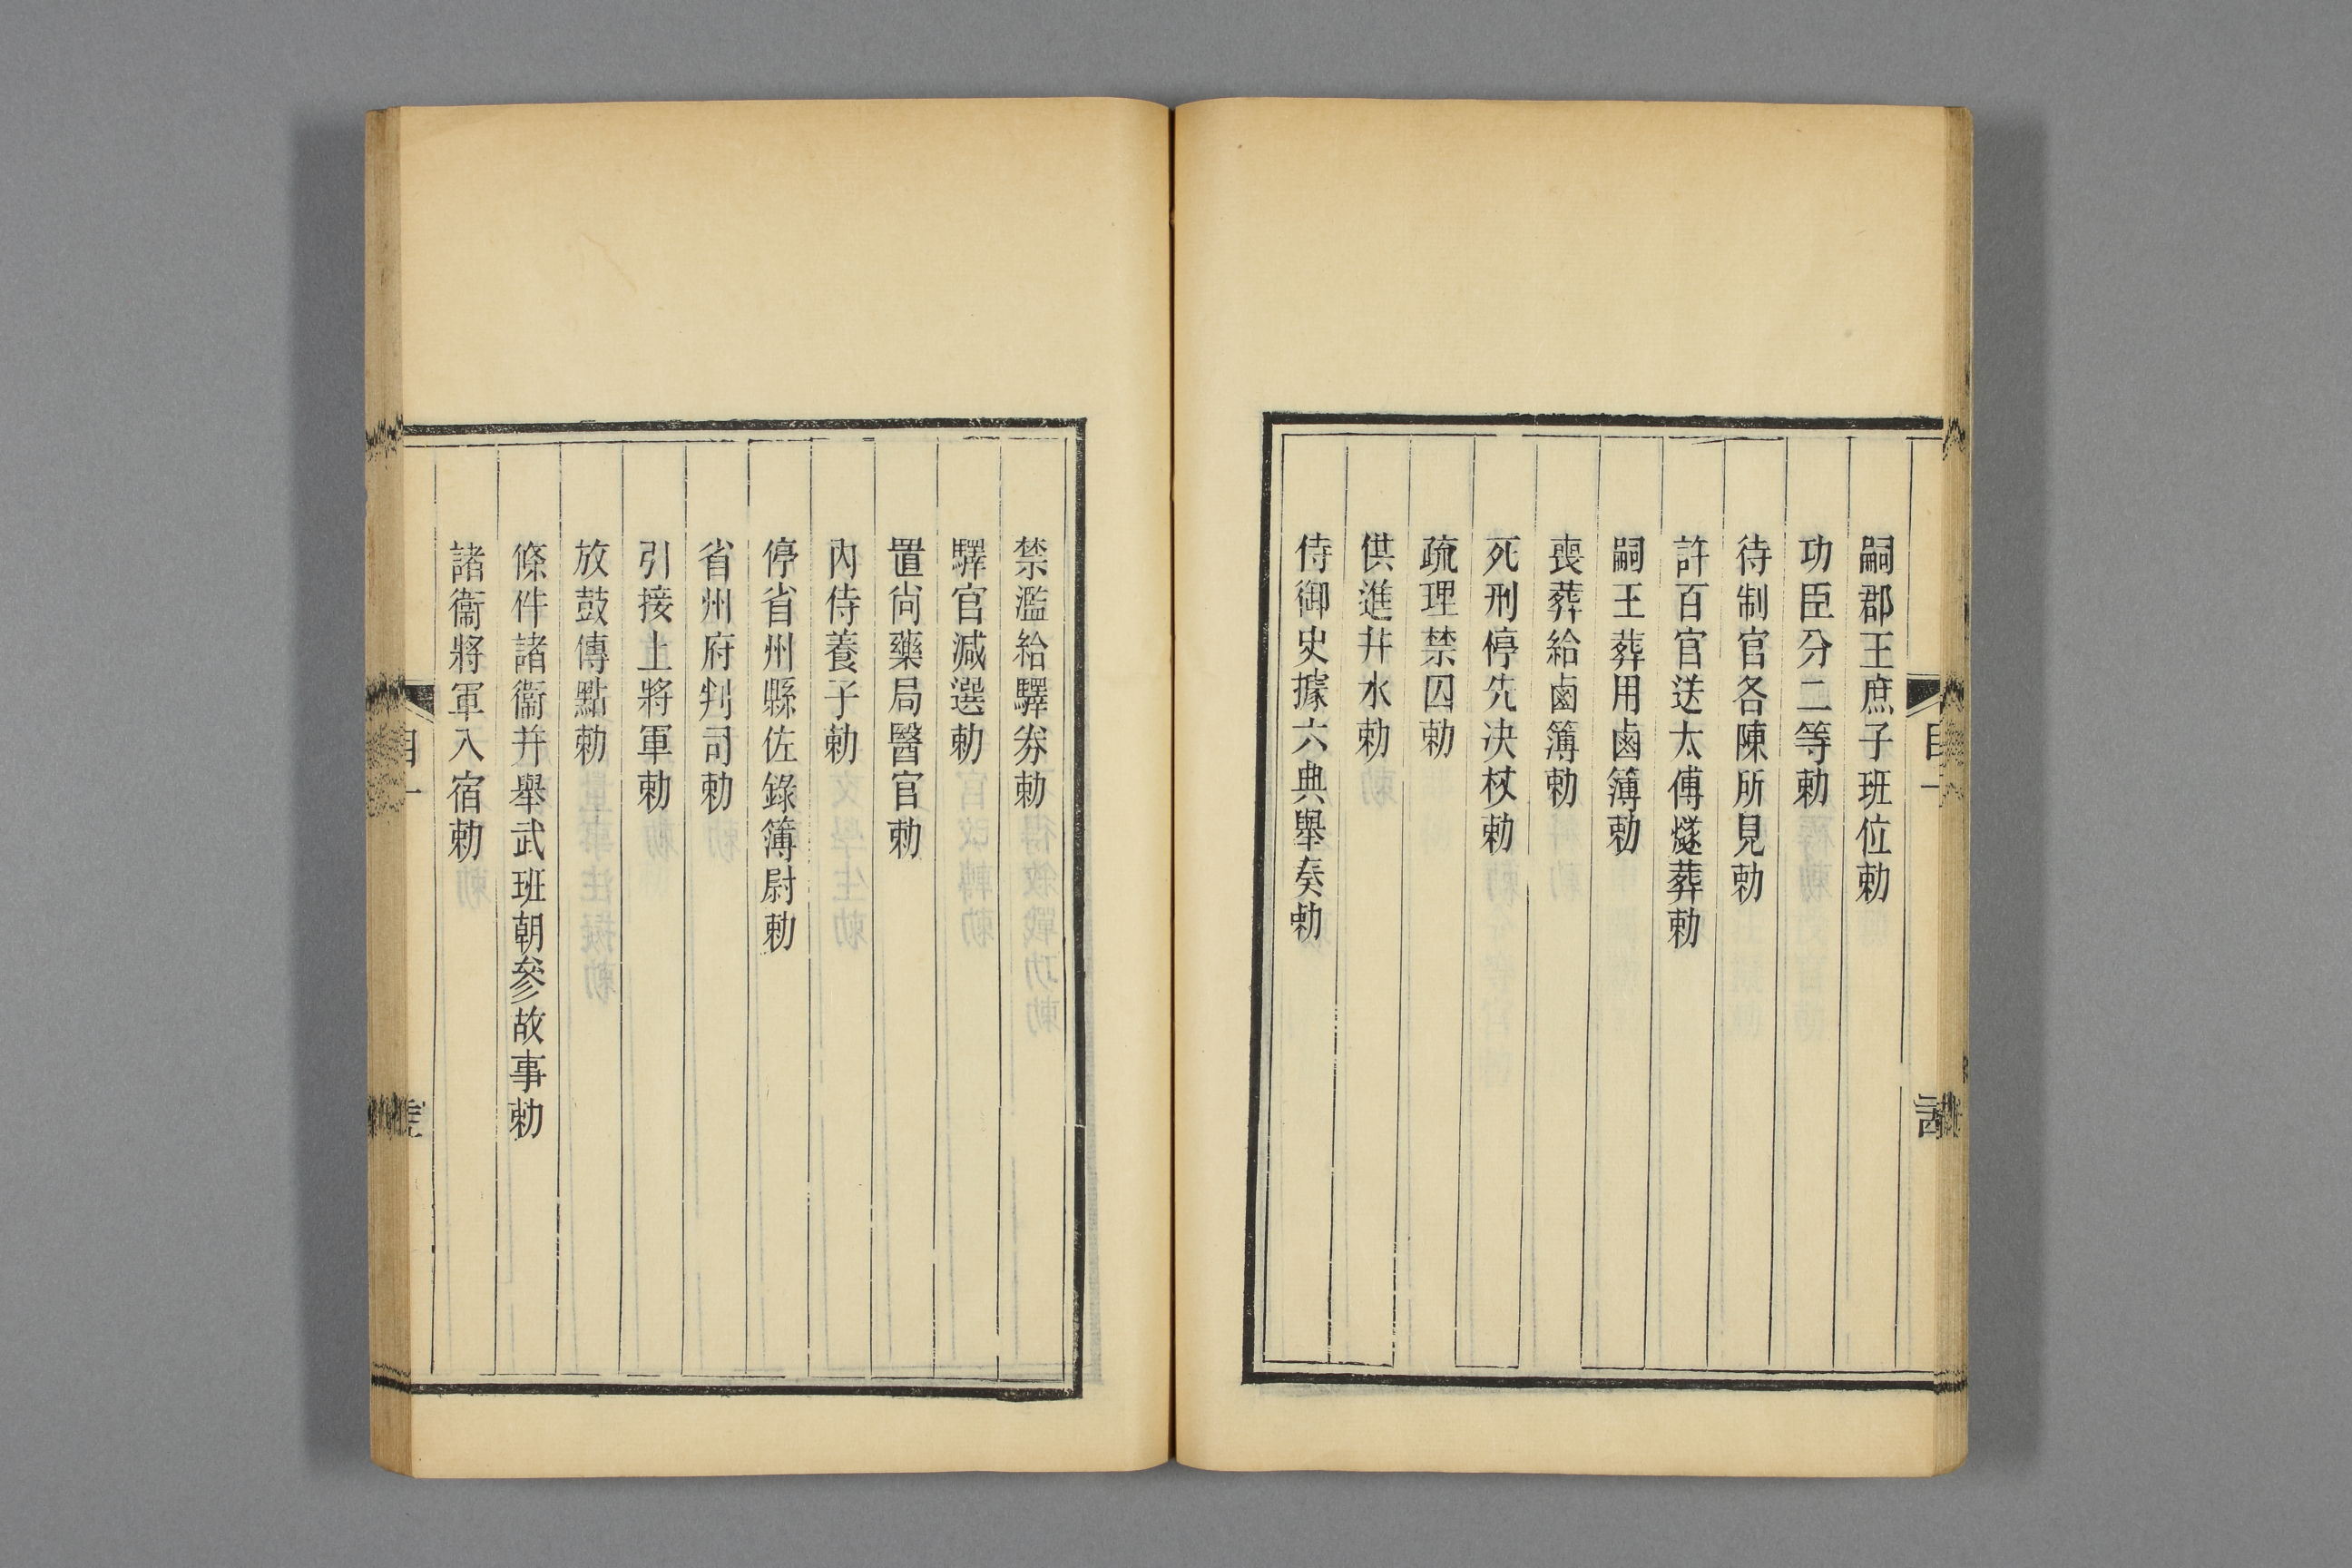 嗣郡王庶子班位勅
功臣分二等勅
待制官各陳所見勅
許百官送太傅燧葬勅
嗣王葬用鹵簿勅
喪葬給鹵簿勅
死刑停先決杖勅
疏理禁囚勅
供進井水勅
侍御史據六典舉奏勅
禁濫給驛券勅
驛官減選勅
置尚藥局醫官勅
內侍養子勅
停省州縣佐錄簿尉勅
省州府判司勅
引接上將軍勅
放鼓傳點勅
條件諸衞幷舉武班朝參故事勅
諸衞將軍入宿勅